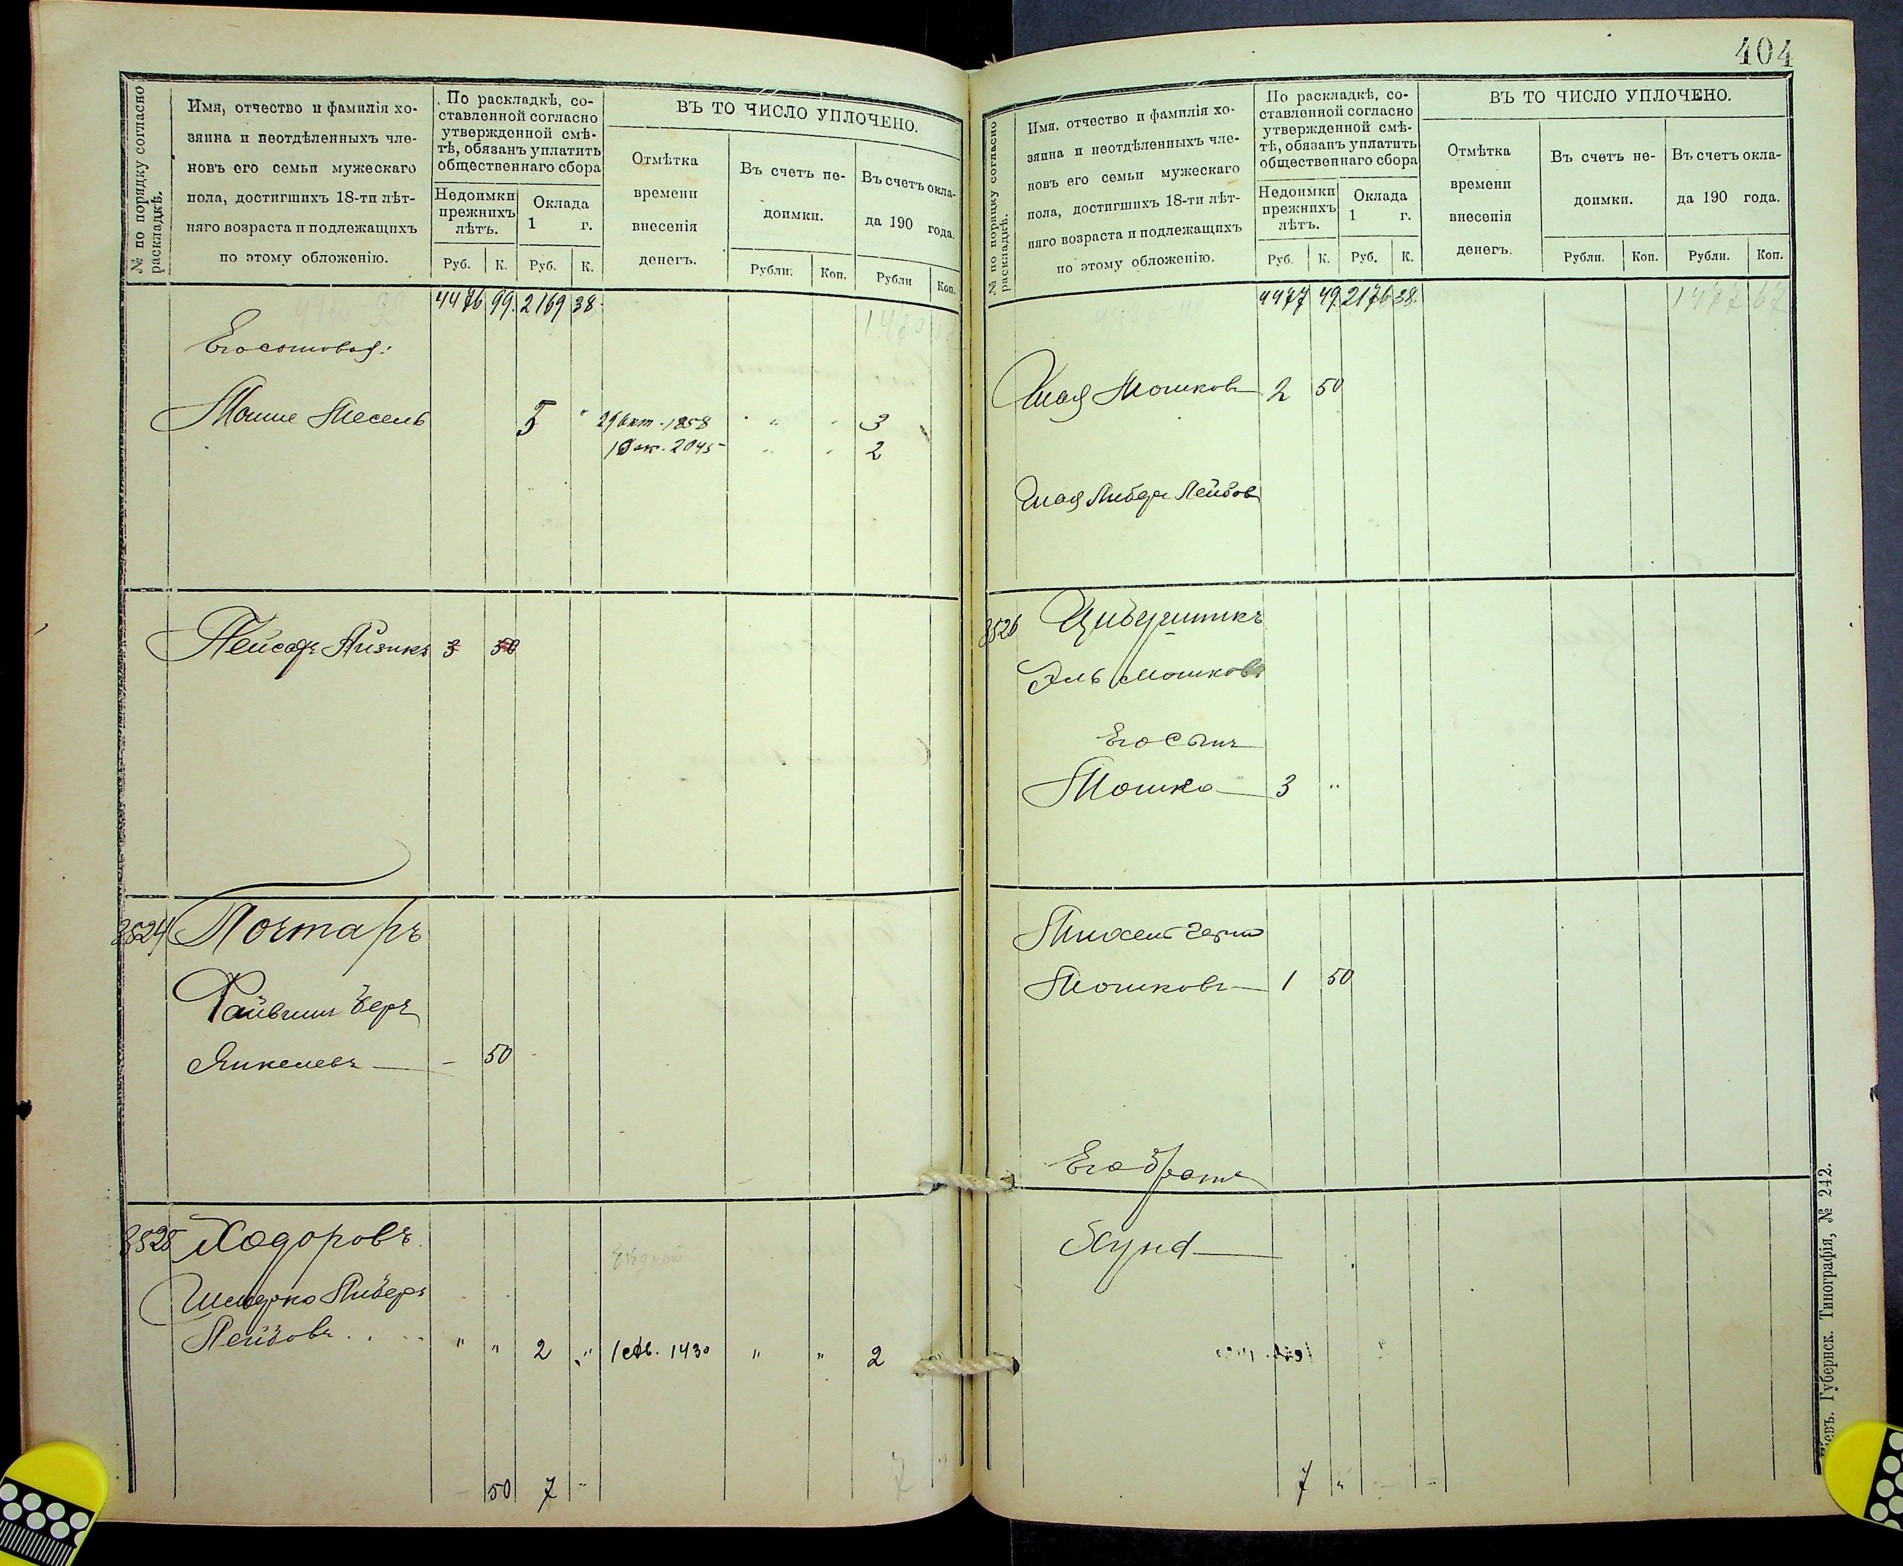 404
№ по порядку согласно раскладкѣ.
Имя, отчество и фамилія хо-
зяина и неотдѣленныхъ чле-
новъ его семьи мужескаго
пола, достигшихъ 18-ти лѣт-
няго возраста и подлежащихъ
по этому обложенію.
По раскладкѣ, со-
ставленной согласно
утвержденной смѣ-
тѣ, обязанъ уплатить
общественнаго сбора
Недоимки
прежнихъ
лѣтъ.
Оклада
1 г.
Руб. К. Руб. К.
ВЪ ТО ЧИСЛО УПЛОЧЕНО.
Отмѣтка
времени
внесенія
денегъ.
Въ счетъ не-
доимки.
Въ счетъ окла-
да 190 года.
Рубли. Коп. Рубли Коп.
4476 99. 2169 38.
Мошке 5 " 29 окт. 1858 " " 3
2045 " " 2
Пейсахъ Айзикъ 3 50
3524 Почтаръ
Файвишъ Беръ
Янкелевъ — – 50
3525 Ходоровъ
Шмерко Либеръ
Лейбовъ . . " " 2 " 1 сен. 1430 " " 2
50 7 "
№ по порядку согласно раскладкѣ.
Имя, отчество и фамилія хо-
зяина и неотдѣленныхъ чле-
новъ его семьи мужескаго
пола, достигшихъ 18-ти лѣт-
няго возраста и подлежащихъ
по этому обложенію.
По раскладкѣ, со-
ставленной согласно
утвержденной смѣ-
тѣ, обязанъ уплатить
общественнаго сбора
Недоимки
прежнихъ
лѣтъ.
Оклада
1 г.
Руб. К. Руб. К.
ВЪ ТО ЧИСЛО УПЛОЧЕНО.
Отмѣтка
времени
внесенія
денегъ.
Въ счетъ не-
доимки.
Въ счетъ окла-
да 190 года.
Рубли. Коп. Рубли. Коп.
4477 49 2176 38.
1477 67
Шая Мошковъ 2 50
Шая Либеръ Лейбов
3526 Цибульникъ
Эль Мошковъ
Его сынъ
Мошко — 3 "
Мошковъ — 1 50
Его братъ
Хуна —
7 "
Кіевъ. Губернск. Типографія, № 242.